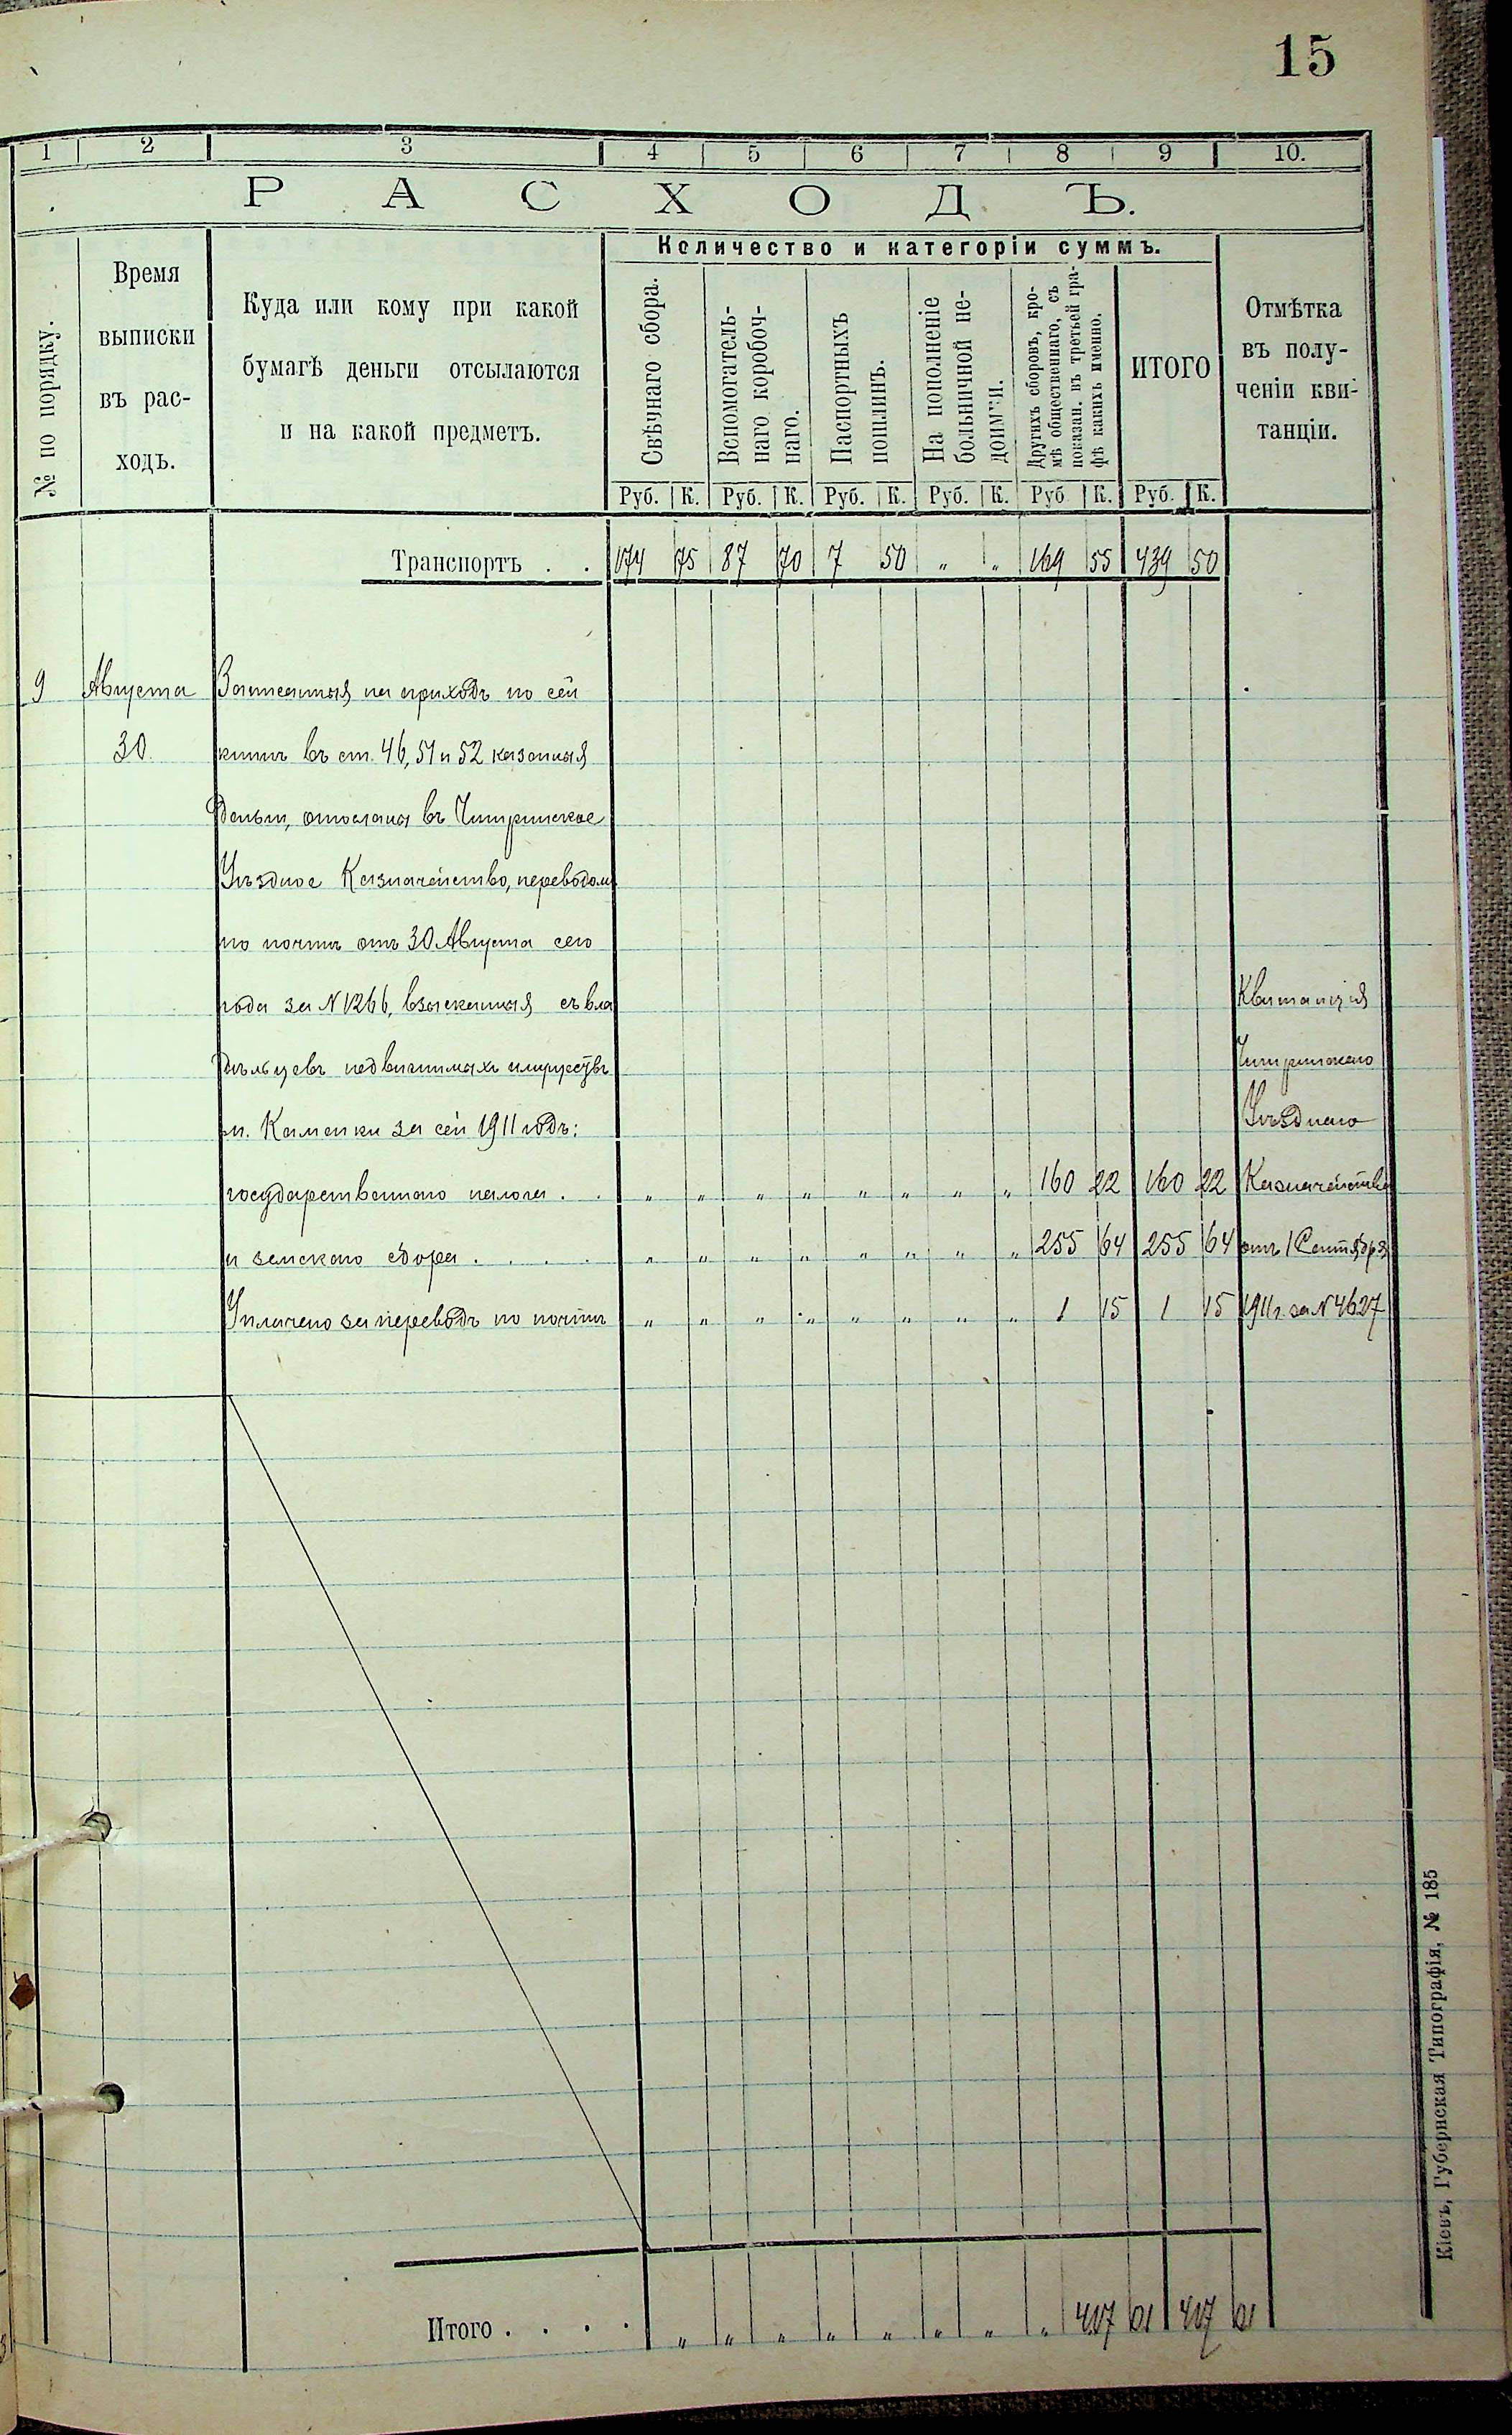 15
1 2 3 4 5 6 7 8 9 10.
РАСХОДЪ.
№ по порядку.
Время
выписки
въ рас-
ходъ.
Куда или кому при какой
бумагѣ деньги отсылаются
и на какой предметъ.
Количество и категоріи суммъ.
Свѣчнаго сбора.
Вспомогатель-
наго коробоч-
наго.
Паспортныхъ
пошлинъ.
На пополненіе
больничной не-
доимки.
Другихъ сборовъ, кро-
мѣ общественнаго, съ
показан. въ третьей гра-
фѣ какихъ именно.
ИТОГО
Отмѣтка
въ полу-
ченіи кви-
танціи.
Руб. К. Руб. К. Руб. К. Руб. К. Руб К. Руб. К.
Транспортъ . . 174 75 87 70 7 50 „ „ 169 55 439 50
9 Августа Записанныя на приходъ по сей
30 книгѣ въ ст. 46, 51 и 52 казенныя
деньги, отосланы въ Чигиринское
Уѣздное Казначейство, переводомъ
по почтѣ отъ 30 Августа сего
года за N 1266, взысканныя съ вла
дѣльцевъ недвижимыхъ имуществъ
м. Каменки за сей 1911 годъ:
государственнаго налога . . „ „ „ „ „ „ „ „ 160 22 160 22
и земскаго сбора . . . . „ „ „ „ „ „ „ „ 255 64 255 64
Уплачено за переводъ по почтѣ „ „ „ „ „ „ „ „ 1 15 1 15
Квитанція
Чигиринскаго
Уѣзднаго
Казначейства
отъ 1 Сентября
1911 г. за N 4627
Итого . . . . „ „ „ „ „ „ „ „ 417 01 417 01
Кіевъ, Губернская Типографія, № 185